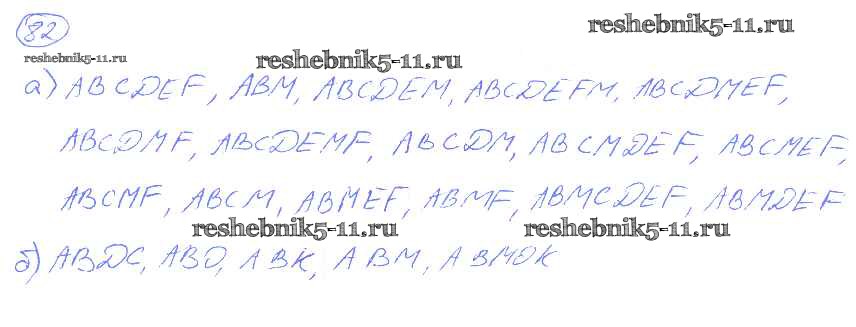 82
reshebnik5-11.ru
reshebnik5-11.ru
reshebnik5-11.ru
а) ABCDEF, ABM, ABCDEM, ABCDEFM, ABCDMEF,
ABCDMF, ABCDEMF, ABCDM, ABCMDEF, ABCMEF,
ABCMF, ABCM, ABMEF, ABMF, ABMCDEF, ABMDEF
reshebnik5-11.ru
reshebnik5-11.ru
б) ABDC, ABO, ABK, ABM, ABMOK